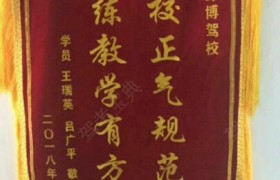 博驾校
校正气规范
练教学有方
学员王瑞英吕广平敬
二〇一八年